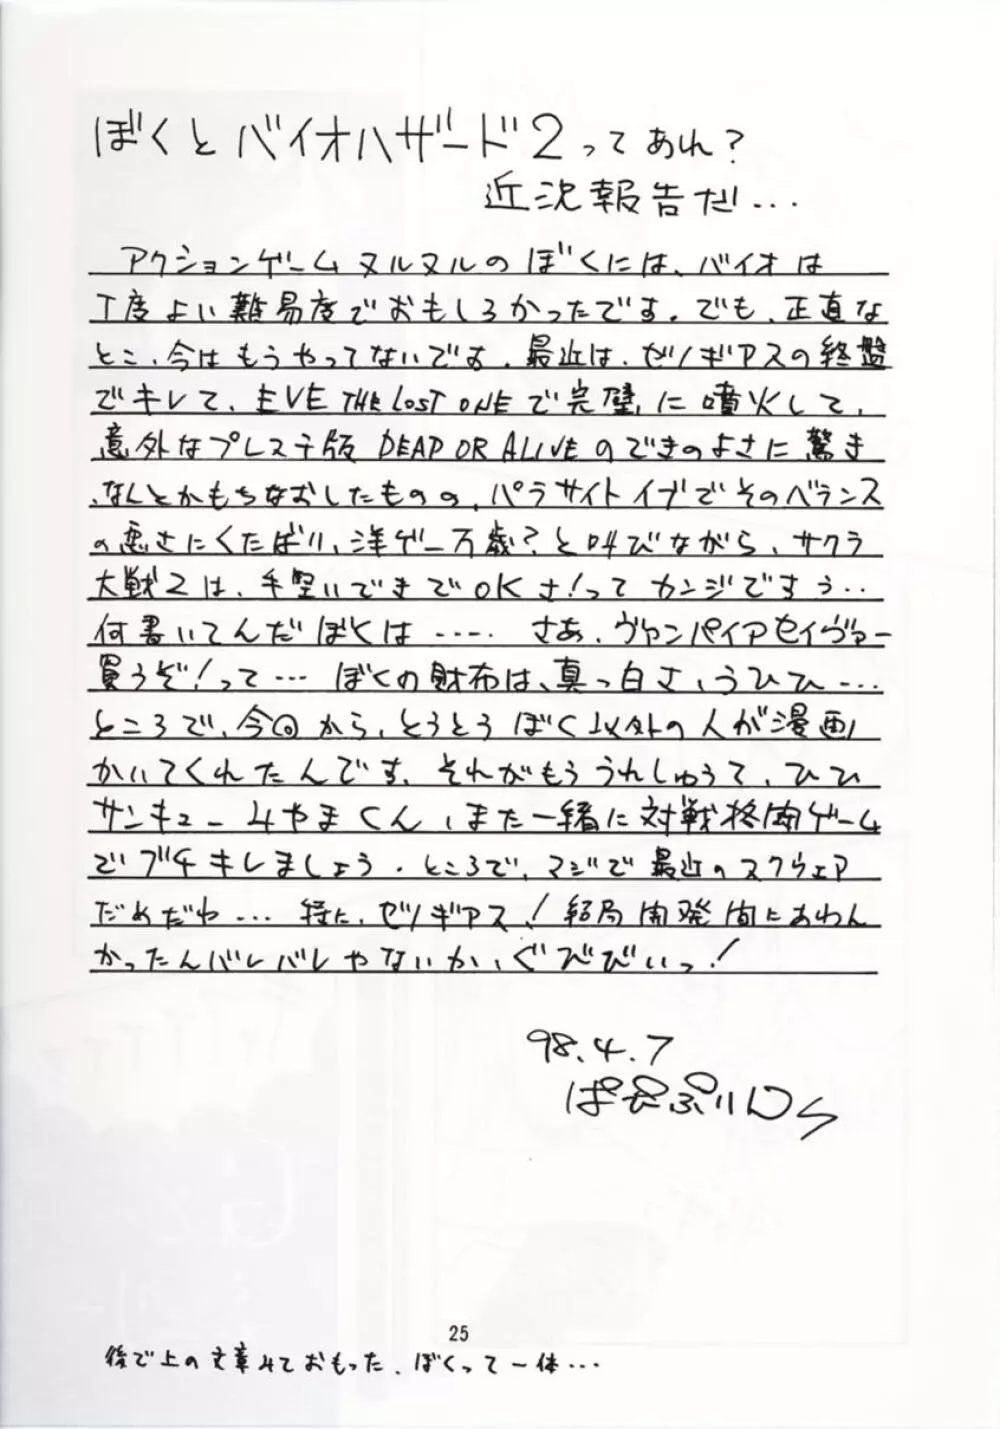 ぼくとバイオハザード2ってあれ?
近況報告だ...
アクションゲームヌルヌルのぼくには、バイオは
丁度よい難易度でおもしろかったです。でも、正直な
とこ、今はもうやってないです。最近は、ゼノギアスの終盤
でキレて、EVE THE LOST ONEで完璧に噴火して、
意外なプレステ版DEAD OR ALIVEのできのよさに驚き
、なんとかもちなおしたものの、パラサイトイブでそのベランス
の悪さにくたばり、洋ゲー万歳?と叫びながら、サクラ
大戦2は、手堅いできでOKさ!ってカンジですぅ..
何書いてんだぼくは..... さあ、ヴァンパイアセイヴァー
買うぞ!って... ぼくの財布は、真っ白さ、うひひ...
ところで、今回から、とうとうぼく以外の人が漫画
かいてくれたんです。それがもううれしゅうて、ひひ
サンキューみやまくん、また一緒に対戦格闘ゲーム
でブチキレましょう。ところで、マジで最近のスクウェア
だめだわ... 特に、ゼノギアス!結局開発間にあわん
かったんバレバレやないか、ぐびびいっ!
98.4.7
25
後で上の文章みておもった、ぼくって一体...